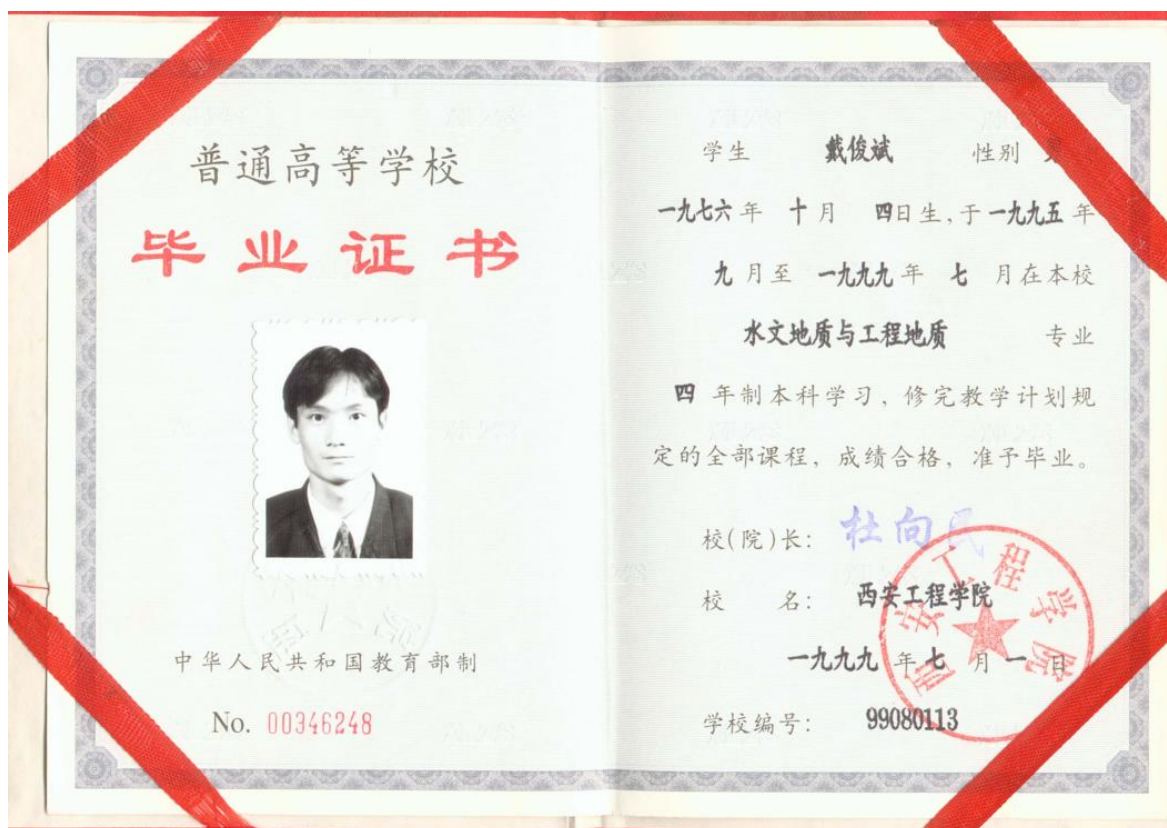 普通高等学校
毕业证书
中华人民共和国教育部制
No. 00346248
学生 戴俊斌 性别
一九七六年 十月 四日生,于一九九五年
九月至 一九九九年 七 月在本校
水文地质与工程地质 专业
四 年制本科学习,修完教学计划规
定的全部课程,成绩合格,准予毕业。
校(院)长: 杜向民
校 名: 西安工程学院
一九九九 年七 月 一 日
学校编号: 99080113
西安工程学院